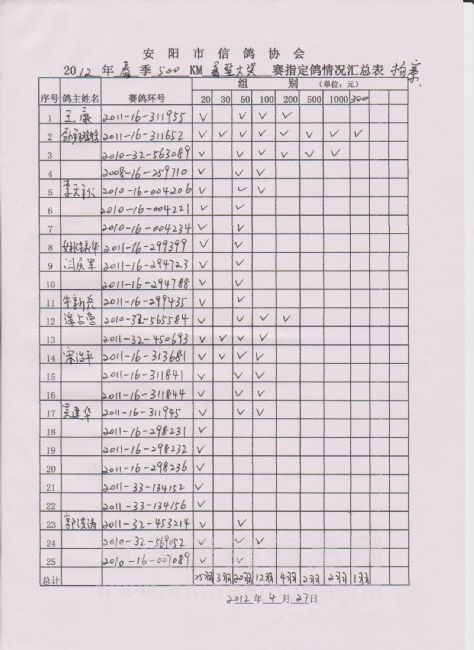 安阳市信鸽协会
2012年春季500KM 大奖 赛指定鸽情况汇总表
组 别 (单位:元)
序号 鸽主姓名 赛鸽环号 20 30 50 100 200 500 1000 300
1 王康 2011-16-311955 ✓ ✓ ✓ ✓
2 2011-16-311652 ✓ ✓ ✓ ✓ ✓ ✓ ✓ ✓
3 2010-32-563089 ✓ ✓ ✓ ✓ ✓ ✓
4 2008-16-259710 ✓ ✓ ✓
5 2010-16-004206 ✓ ✓ ✓
6 2010-16-004221 ✓ ✓
7 2010-16-004234 ✓ ✓
8 2011-16-299399 ✓ ✓
9 闫庆军 2011-16-294723 ✓ ✓
10 2011-16-294788 ✓ ✓
11 牛新兵 2011-16-299435 ✓ ✓
12 2010-32-565584 ✓ ✓ ✓ ✓
13 2011-32-450693 ✓ ✓ ✓ ✓
14 宋治平 2011-16-313681 ✓ ✓ ✓ ✓
15 2011-16-311841 ✓ ✓ ✓
16 2011-16-311844 ✓ ✓ ✓
17 吴建华 2011-16-311945 ✓ ✓ ✓
18 2011-16-298231 ✓
19 2011-16-298232 ✓
20 2011-16-298236 ✓
21 2011-33-134152 ✓
22 2011-33-134156 ✓
23 2011-32-453214 ✓ ✓
24 2010-32-569052 ✓ ✓ ✓
25 2010-16-007089 ✓ ✓
总计 25羽 3羽 20羽 12羽 4羽 2羽 2羽 1羽
2012年4月27日